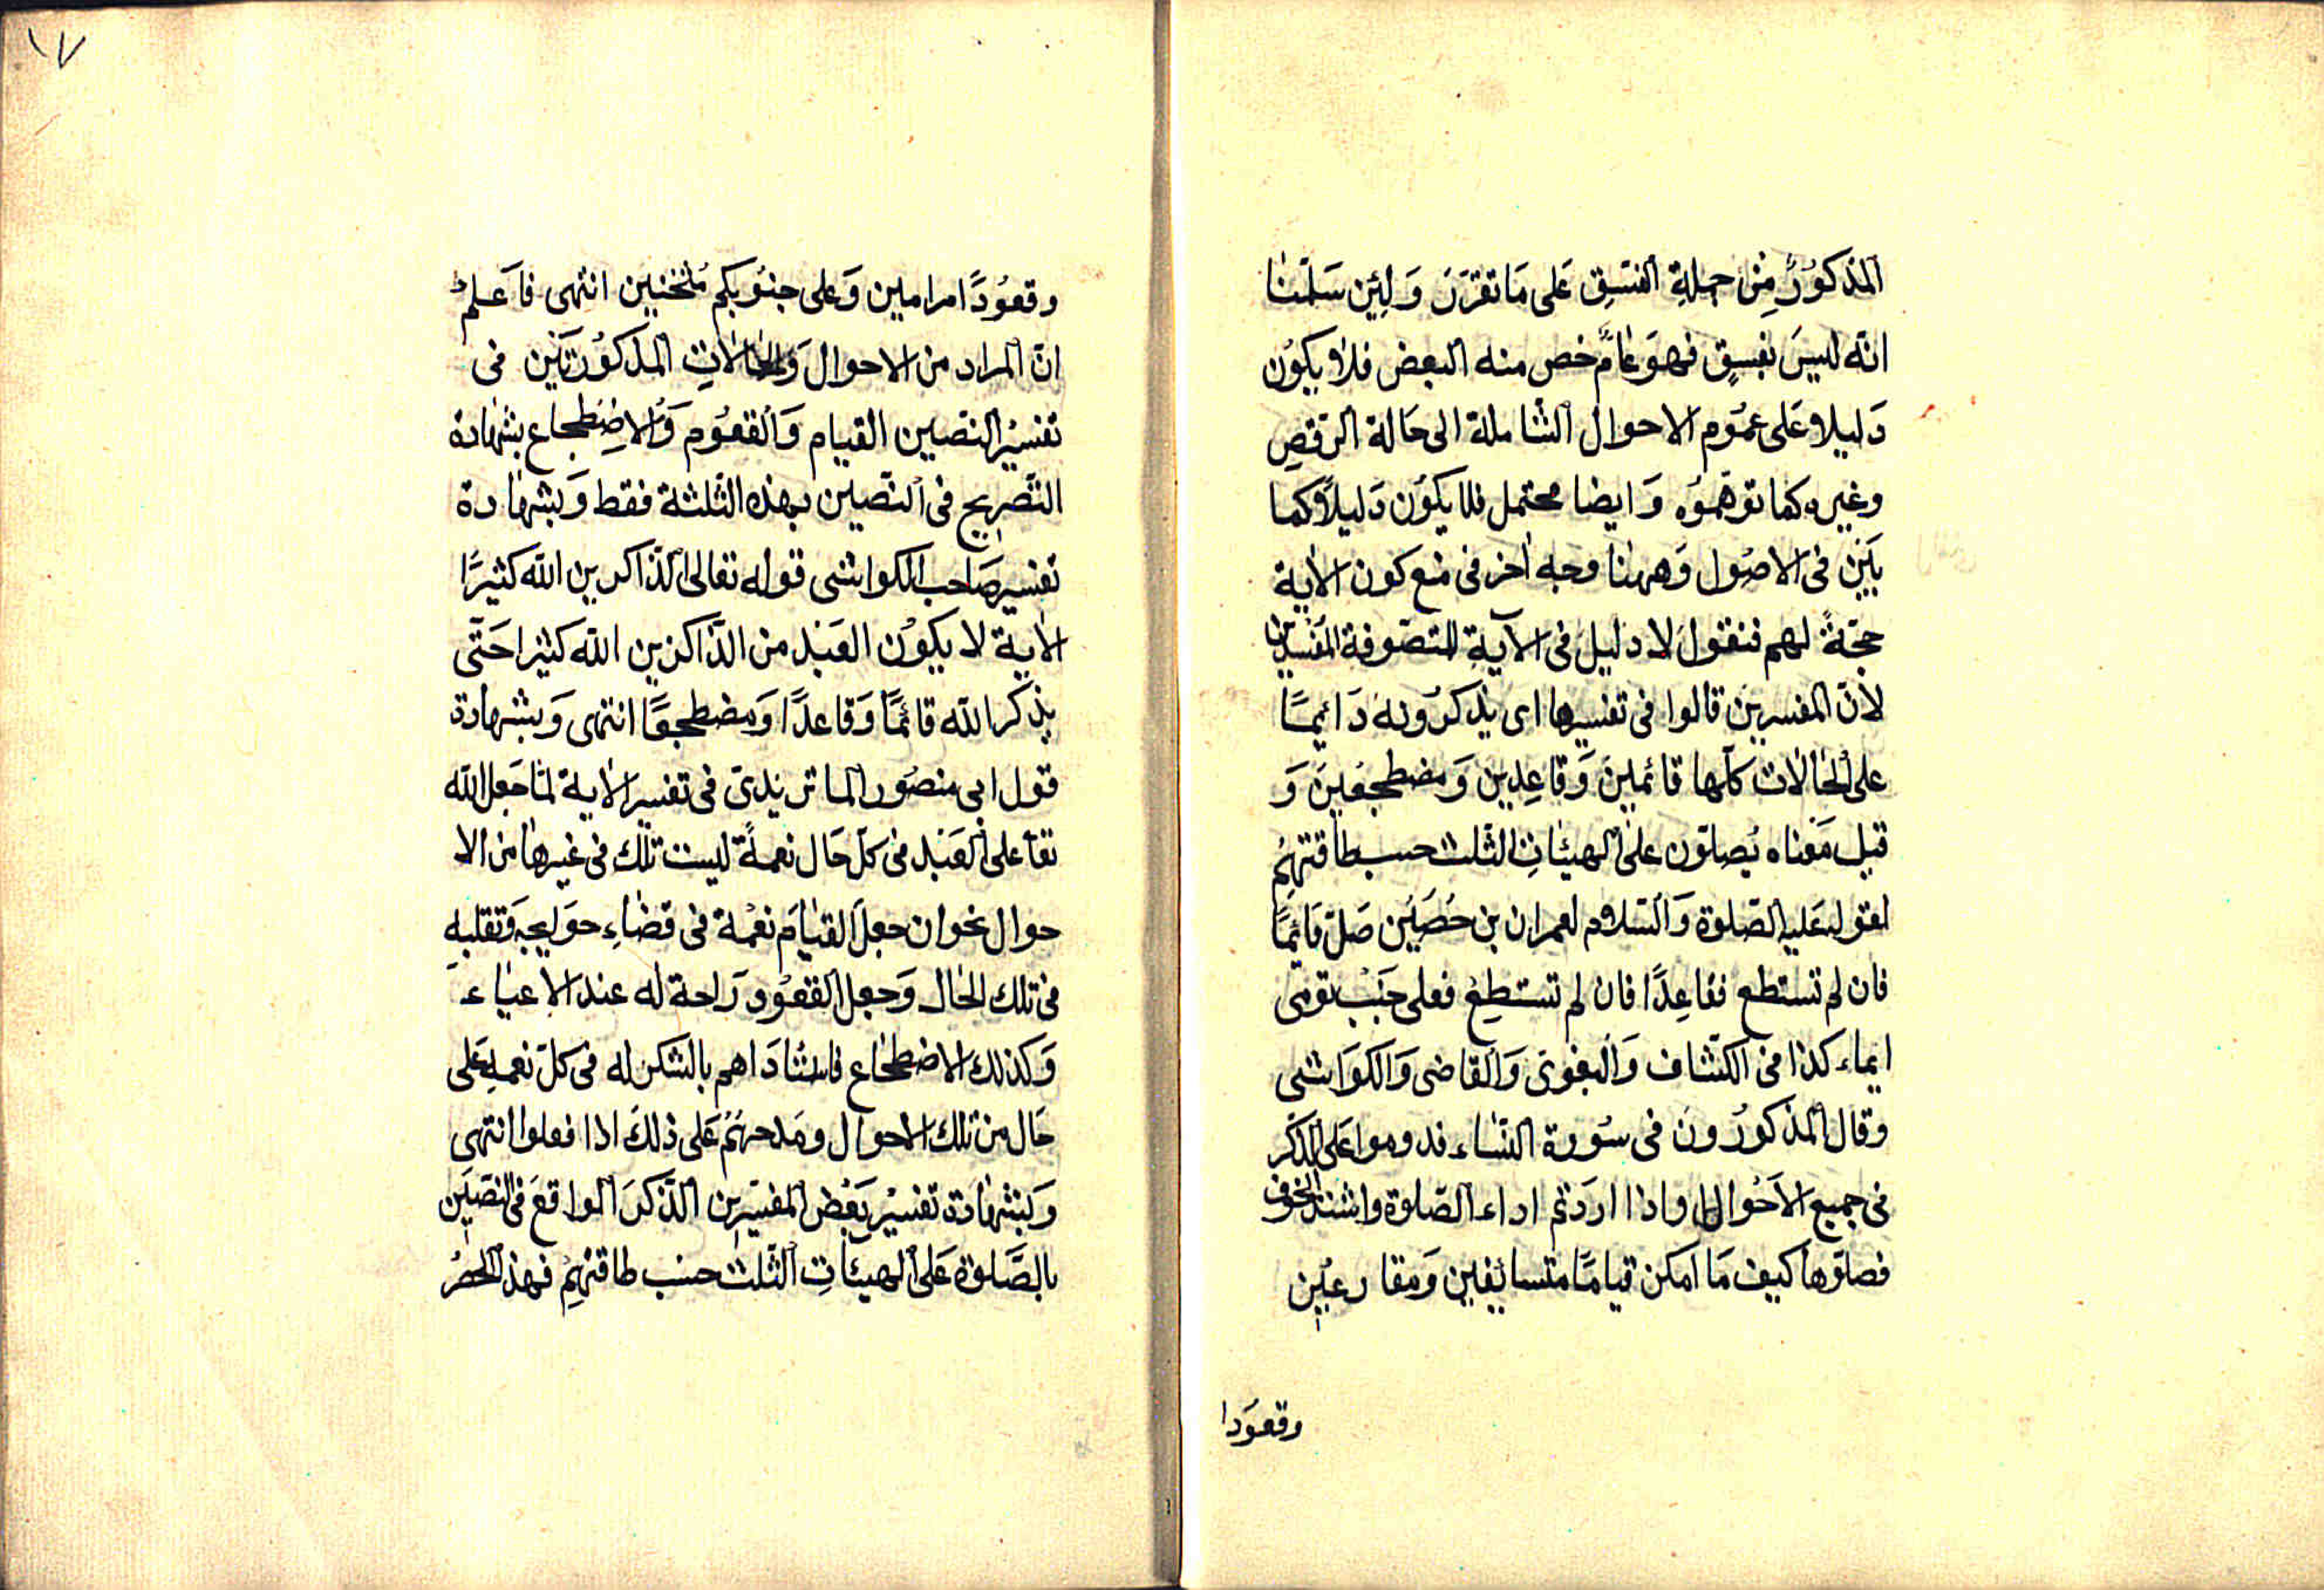 المذكورُ مِن جملةِ الفسِق عَلى مَا تقرَرَ وَلِئِن سَلمنا
انّه ليسَ بفسِقٍ فهوَ عَامٌّ خص منه البعض فلا يكوُن
دَليلا عَلى عمُوم الاحوال الشّاملة الى حَالة الرّقصِ
وغيره كما توَهّموُه وَايضا محتمل فلا يكوُن دَليلاً كما
بَيَن فى الاصُول وَههنا وجه اخر فى منع كون الاية
حجّةً لهم فنقوُل لا دليلَ فى الآيةِ للمتصَوفة المفَسِدين
لانّ المفسرين قالوا فى تفسيرها اى يذكرُونه دَائمًا
على الحالات كلّها قائميِنَ وَقاعِدين وَمضطجعينَ وَ
قيل مَعناه يُصلوّن على الهيئاتِ الثّلث حسب طاقتهِمْ
لقوله عَليه الصّلوة وَالسّلام لعمران بن حُصَيْن صَلّ قَائِمًا
فان لم تستطع فقاعِدًا فان لم تستطِعْ فعلى جَنْب تومى
ايماء كذا فى الكشّاف وَالبغوى وَالقاضى وَالكوَاشى
وقال المذكورُونَ فى سُورة النّساء فدوموا عَلى الذّكر
فى جميع الاَحْوال واذا اردَتم اداء الصّلوة واشتدّ الخوف
فصلوّها كيف مَا امكن قيامًا متسايفين وَمقارعِين
وقعوَدا
١٧
وقعوُدًا مراميِن وَعلى جنوُبكم مُثْخنين انتهى فاَعلمْ
انّ المراد من الاحوال وَالحالاتِ المذكوُرتَيْن فى
تفسيرُ النصين القيام وَالقعوُم وَالاضِطجاع بشهادة
التّصريح فى النّصين بهذه الثّلثة فقط وَبشهادة
تفسير صَاحب الكواشى قوله تعالى الذّاكرين اللّه كثيرًا
الاية لا يكوُن العَبْد من الذّاكرين اللّه كثيرا حَتّى
يذكر اللّه قائمًا وَقاعدًا وَمضطجعًا انتهى وَبشهادة
قول ابى منصوُر الماتريدىّ فى تفسير الاية لمّا جَعل اللّه
تعا على العَبْد فى كلّ حَال نعمةً ليست تلك فى غيرها من الا
حوال نحوان جعل القيَام نعْمة فى قضاءِ حوَايجه وَتقلبهِ
فى تلك الحال وَجعل القعوُد رَاحة له عند الاعياء
وَكذلك الاضطجاع فاستأدَاهم بالشكر له فى كلّ نعمهِ عَلى
حَال من تلك الاحوال ومَدحهُمْ عَلى ذلكَ اذا فعلوا انتهى
وَبشهادة تفسيْر بَعْض المفسّرين الذّكر الواقعَ فى النّصَيْن
بالصَّلوة عَلى الهيئاتِ الثّلث حسْب طاقتهِمْ فهذ الحصْرُ